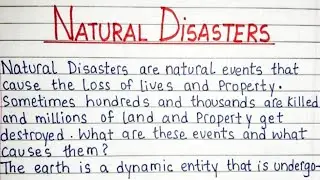 NATURAL DISASTERS
Natural Disasters are natural events that
cause the Loss of lives and Property.
Sometimes hundreds and thousands are killed
and millions of land and Property get
destroyed. What are these events and what
causes them?
The earth is a dynamic entity that is undergo-